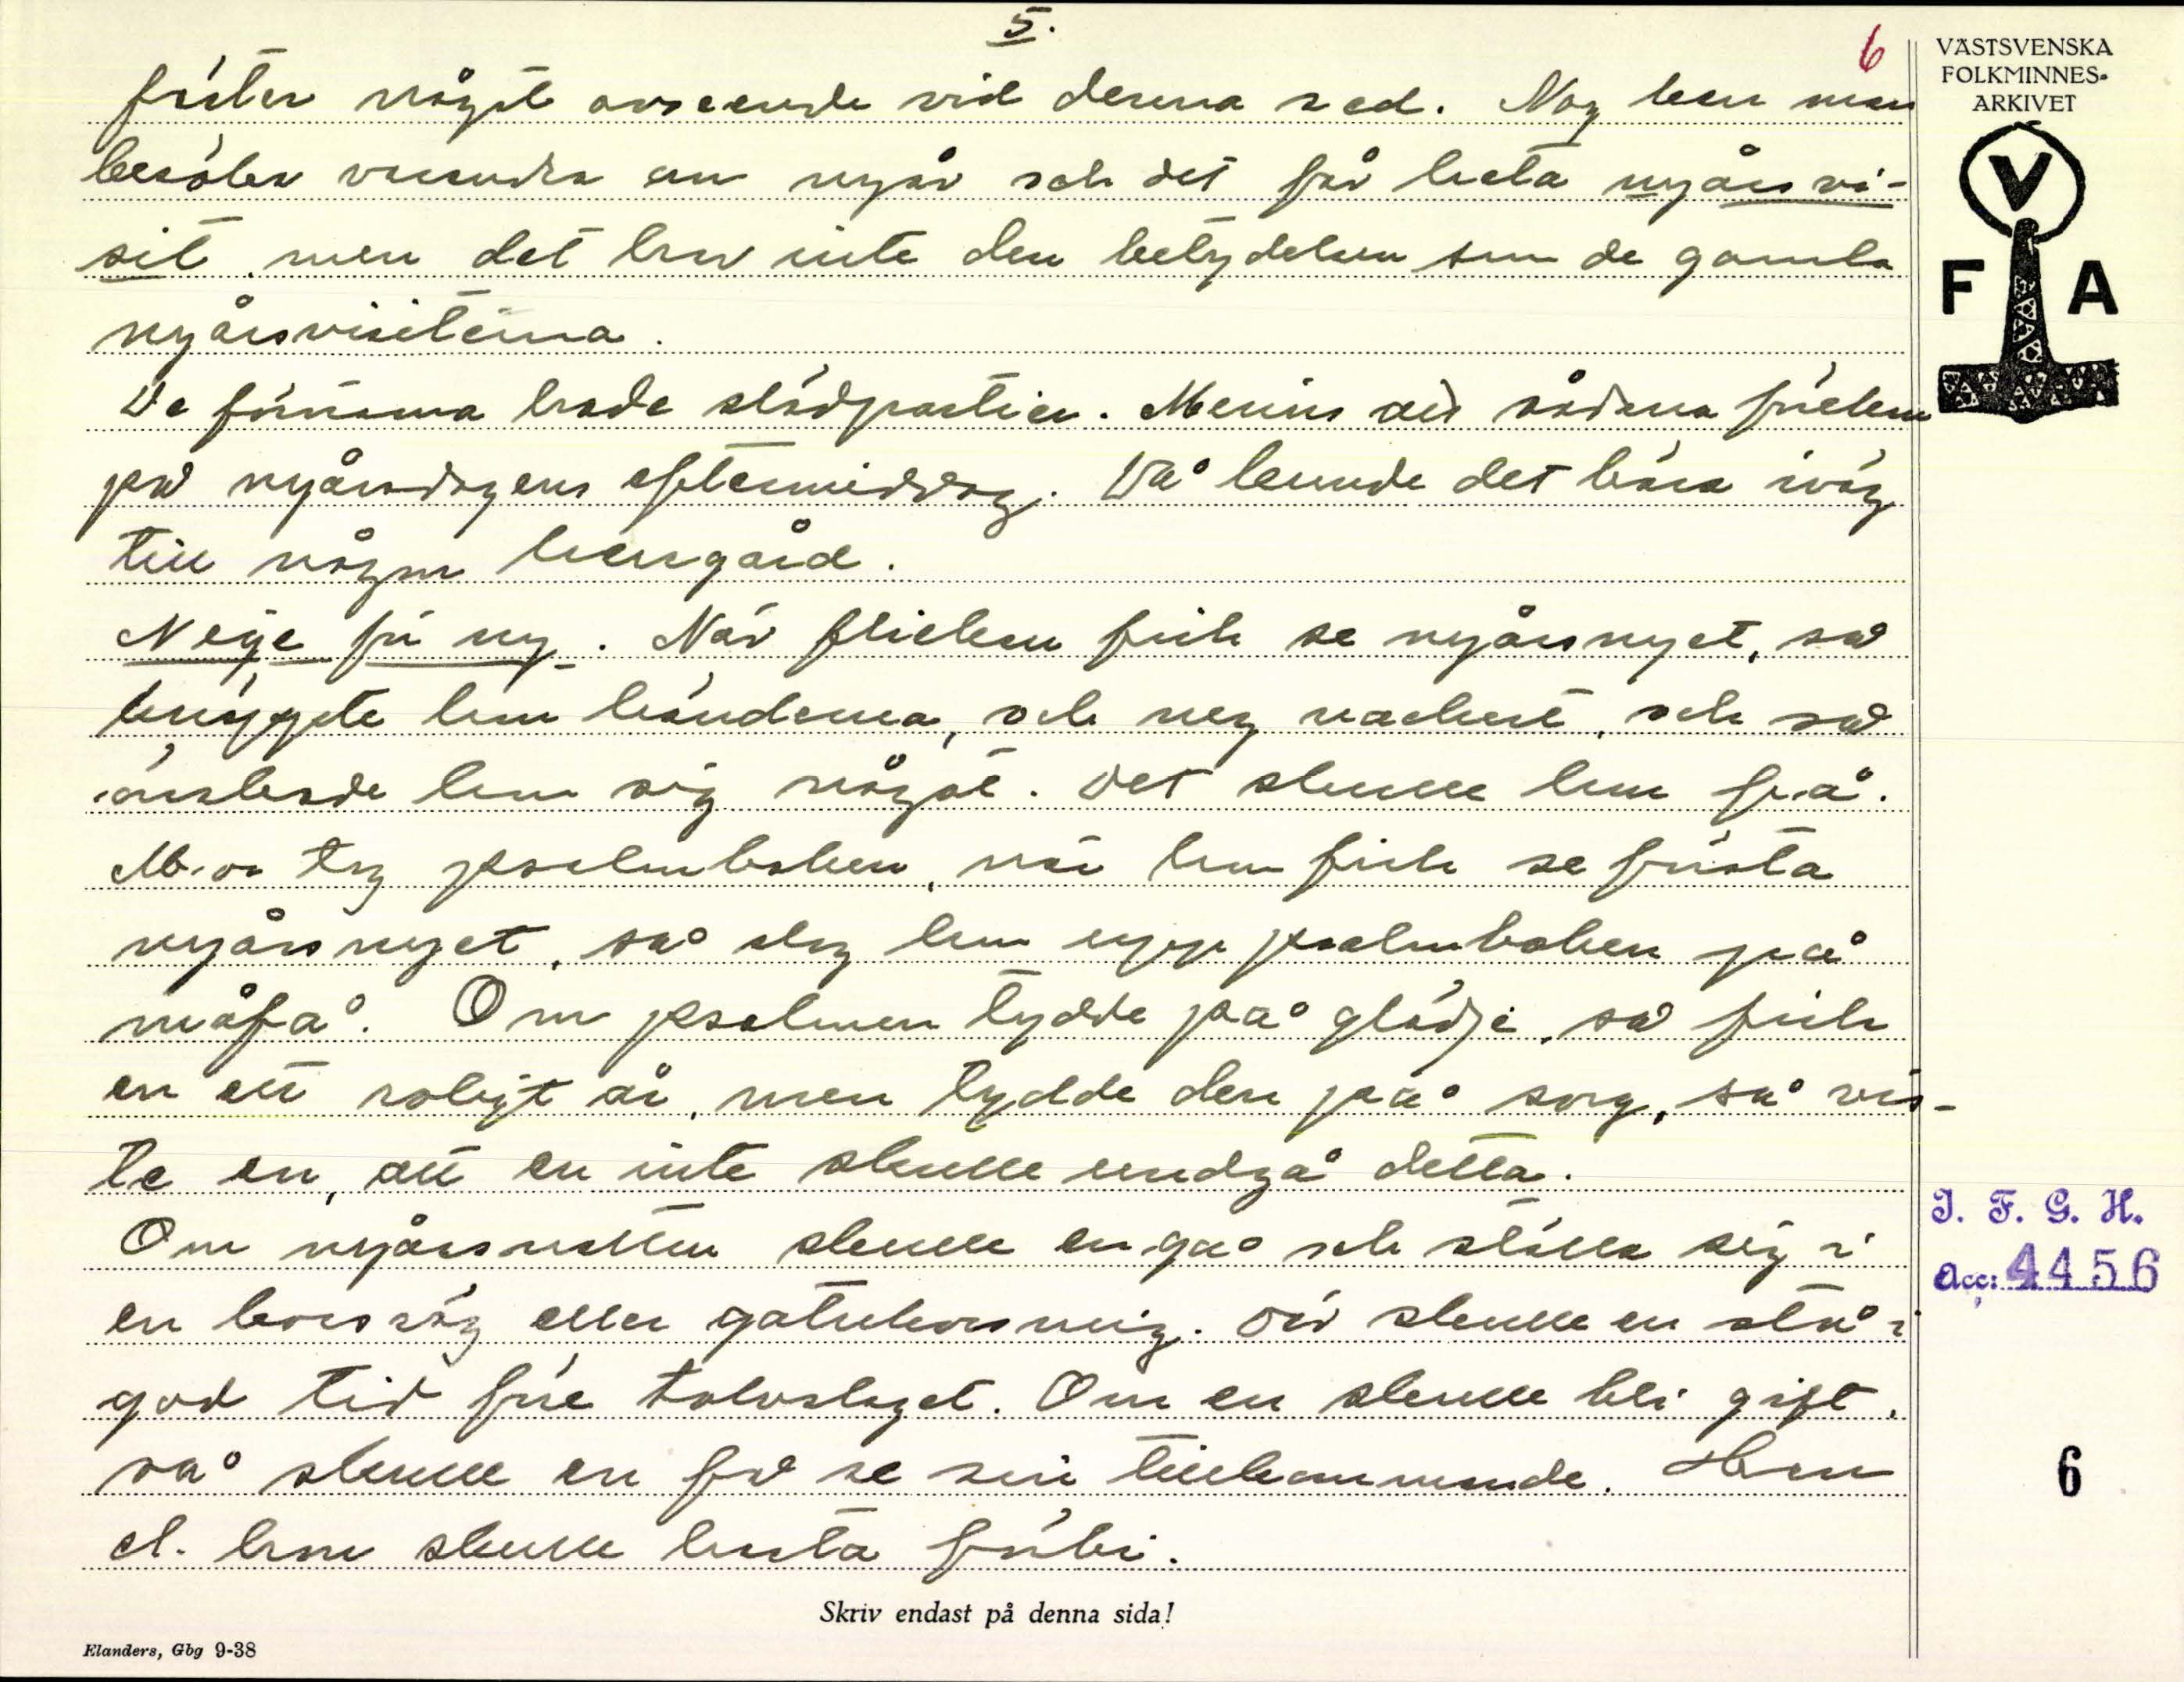 5.
6
VÄSTSVENSKA
FOLKMINNES-
ARKIVET
V
F A
fäster något avseende vid denna sed. Nog kan man
besöka varandra om nyår och det får heta nyårsvi-
sit, men det har inte den betydelsen som de gamla
nyårsvisiterna.
De förnäma hade slädpartier. Minns att sådana företogs
på nyårsdagens eftermiddag. Då kunde det bära iväg
till någon herrgård.
Neije för ny. När flickan fick se nyårsnyet, så
knäppte hon händerna, och neg vackert, och så
önskade hon sig något. Det skulle hon få.
Mor tog psalmboken, när hon fick se första
nyårsnyet, så slog hon upp psalmboken på
måfå. Om psalmen tydde på glädje, så fick
en ett roligt år, men tydde den på sorg, så viss-
te en, att en inte skulle undgå detta.
Om nyårsnatten skulle en gå och ställa sig i
en korsväg eller gatukorsning. Där skulle en stå i
god tid före tolvslaget. Om en skulle bli gift,
så skulle en få se sin tillkommande. Han
el. hon skulle hasta förbi.
I. F. G. H.
Acc: 4456
6
Skriv endast på denna sida!
Elanders, Gbg 9-38